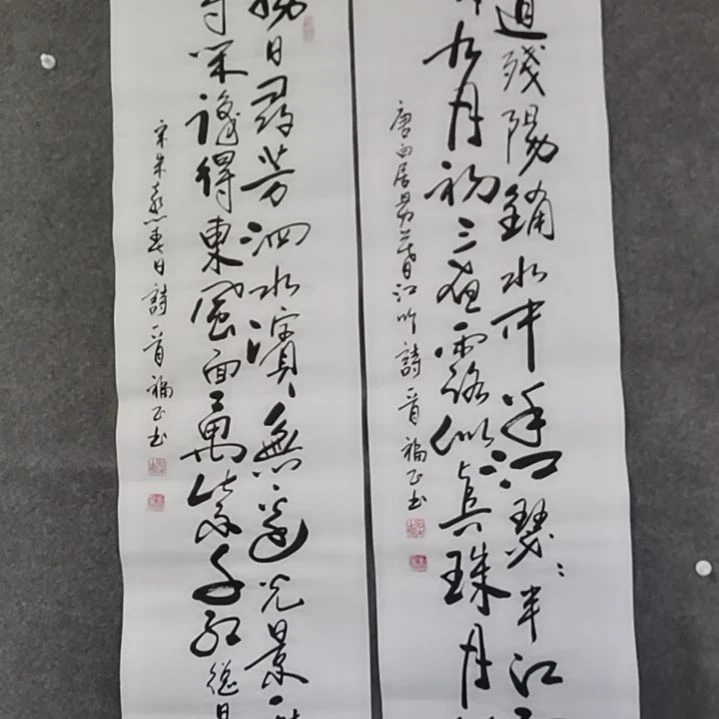 道残陽鋪水中半江瑟瑟半江
九月初三夜露似真珠月
唐白居易暮江吟詩一首福正书
勝日尋芳泗水濱無邊光景一
等閑識得東風面萬紫千红總是
宋朱熹春日詩一首福正书